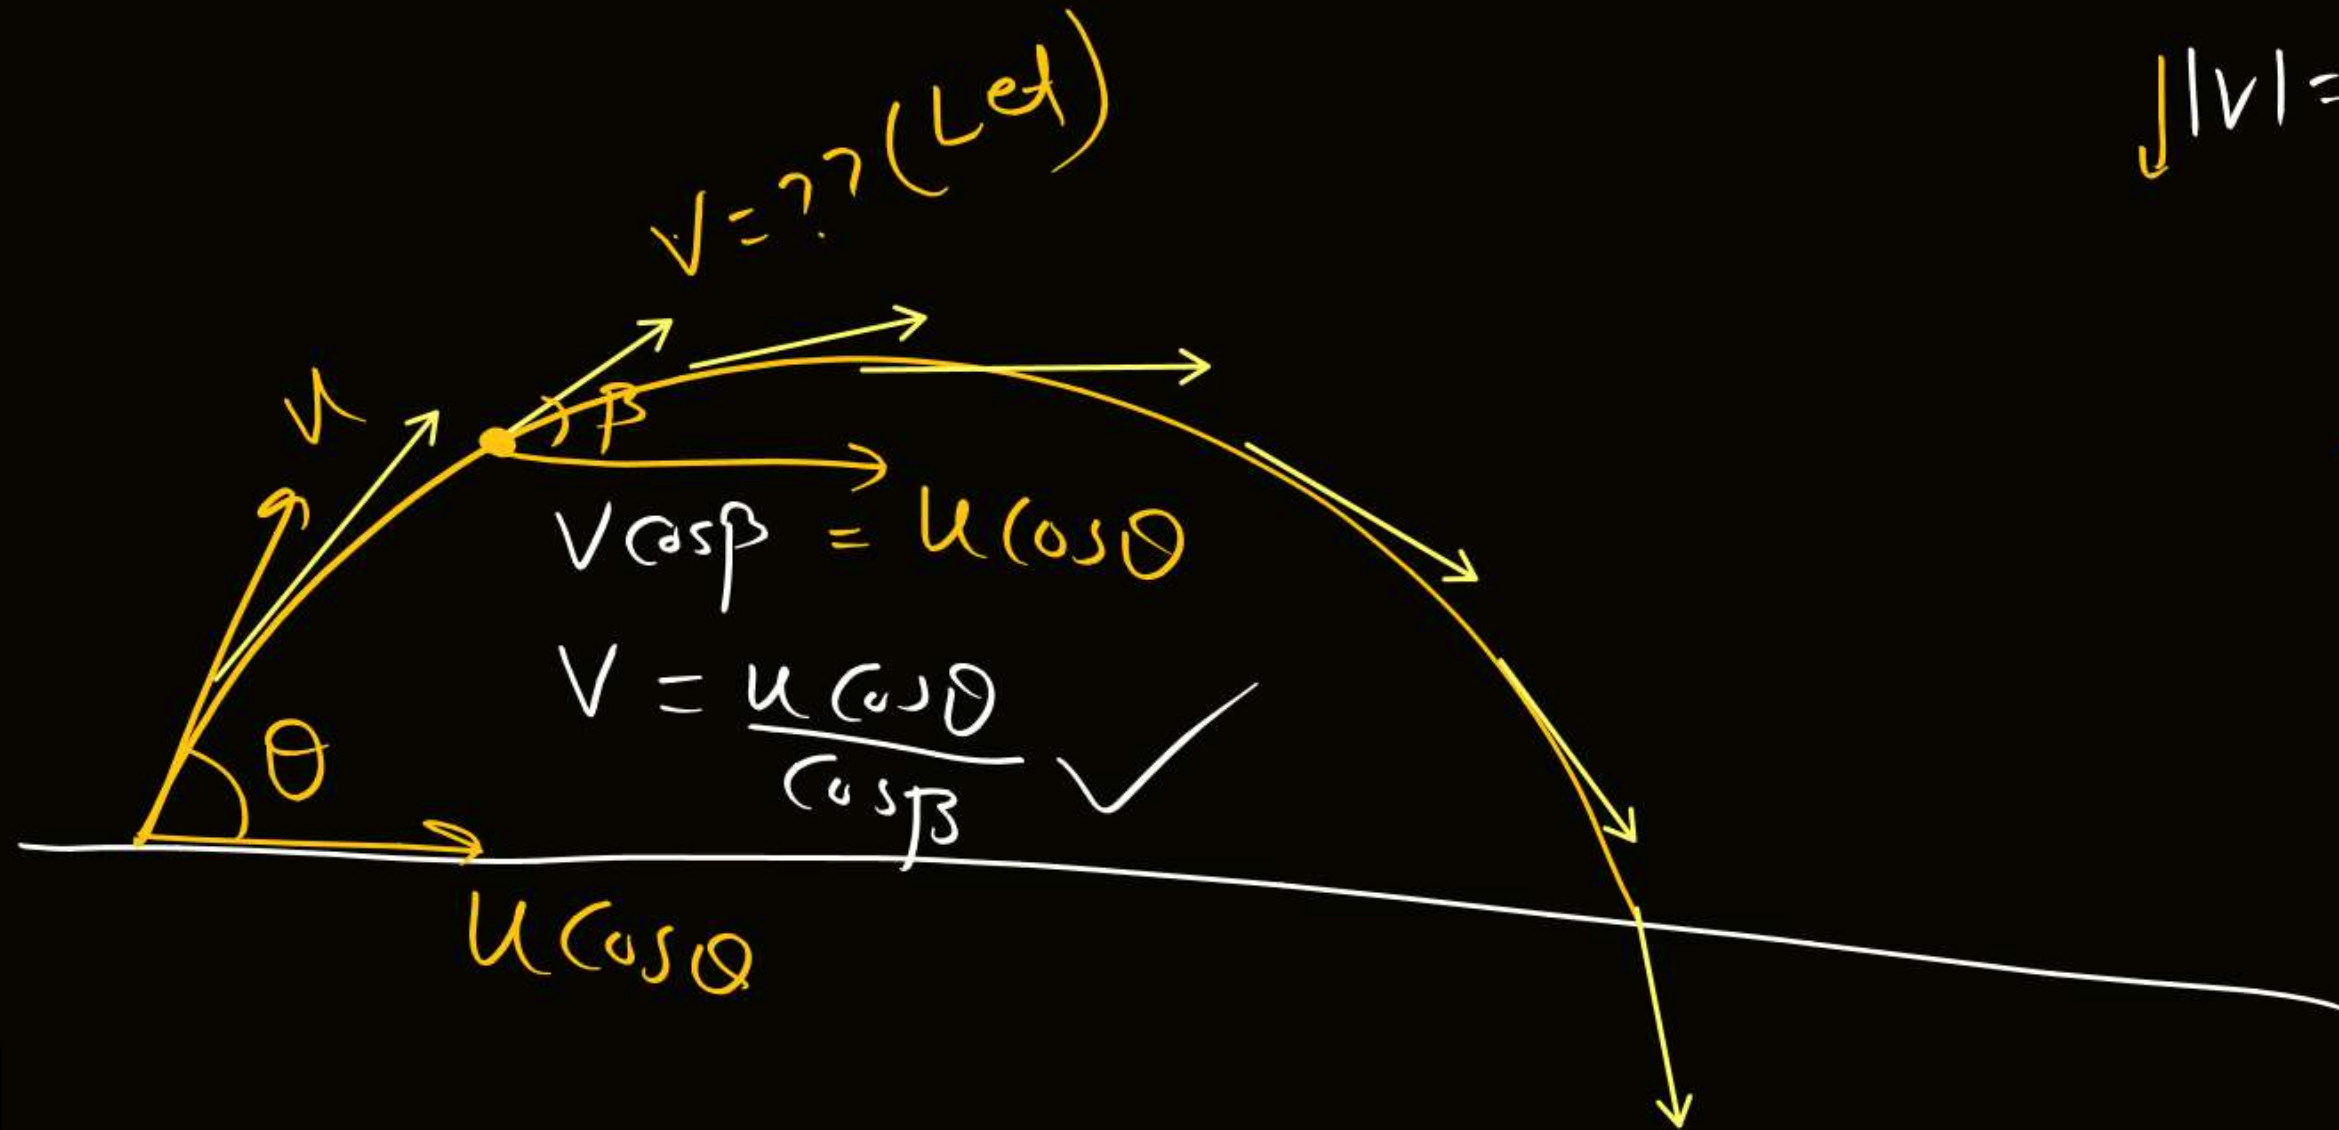 V = ?? (Let)
↓|V| =
u
β
V cosβ = u cosθ
V = u cosθ / cosβ ✓
θ
u cosθ